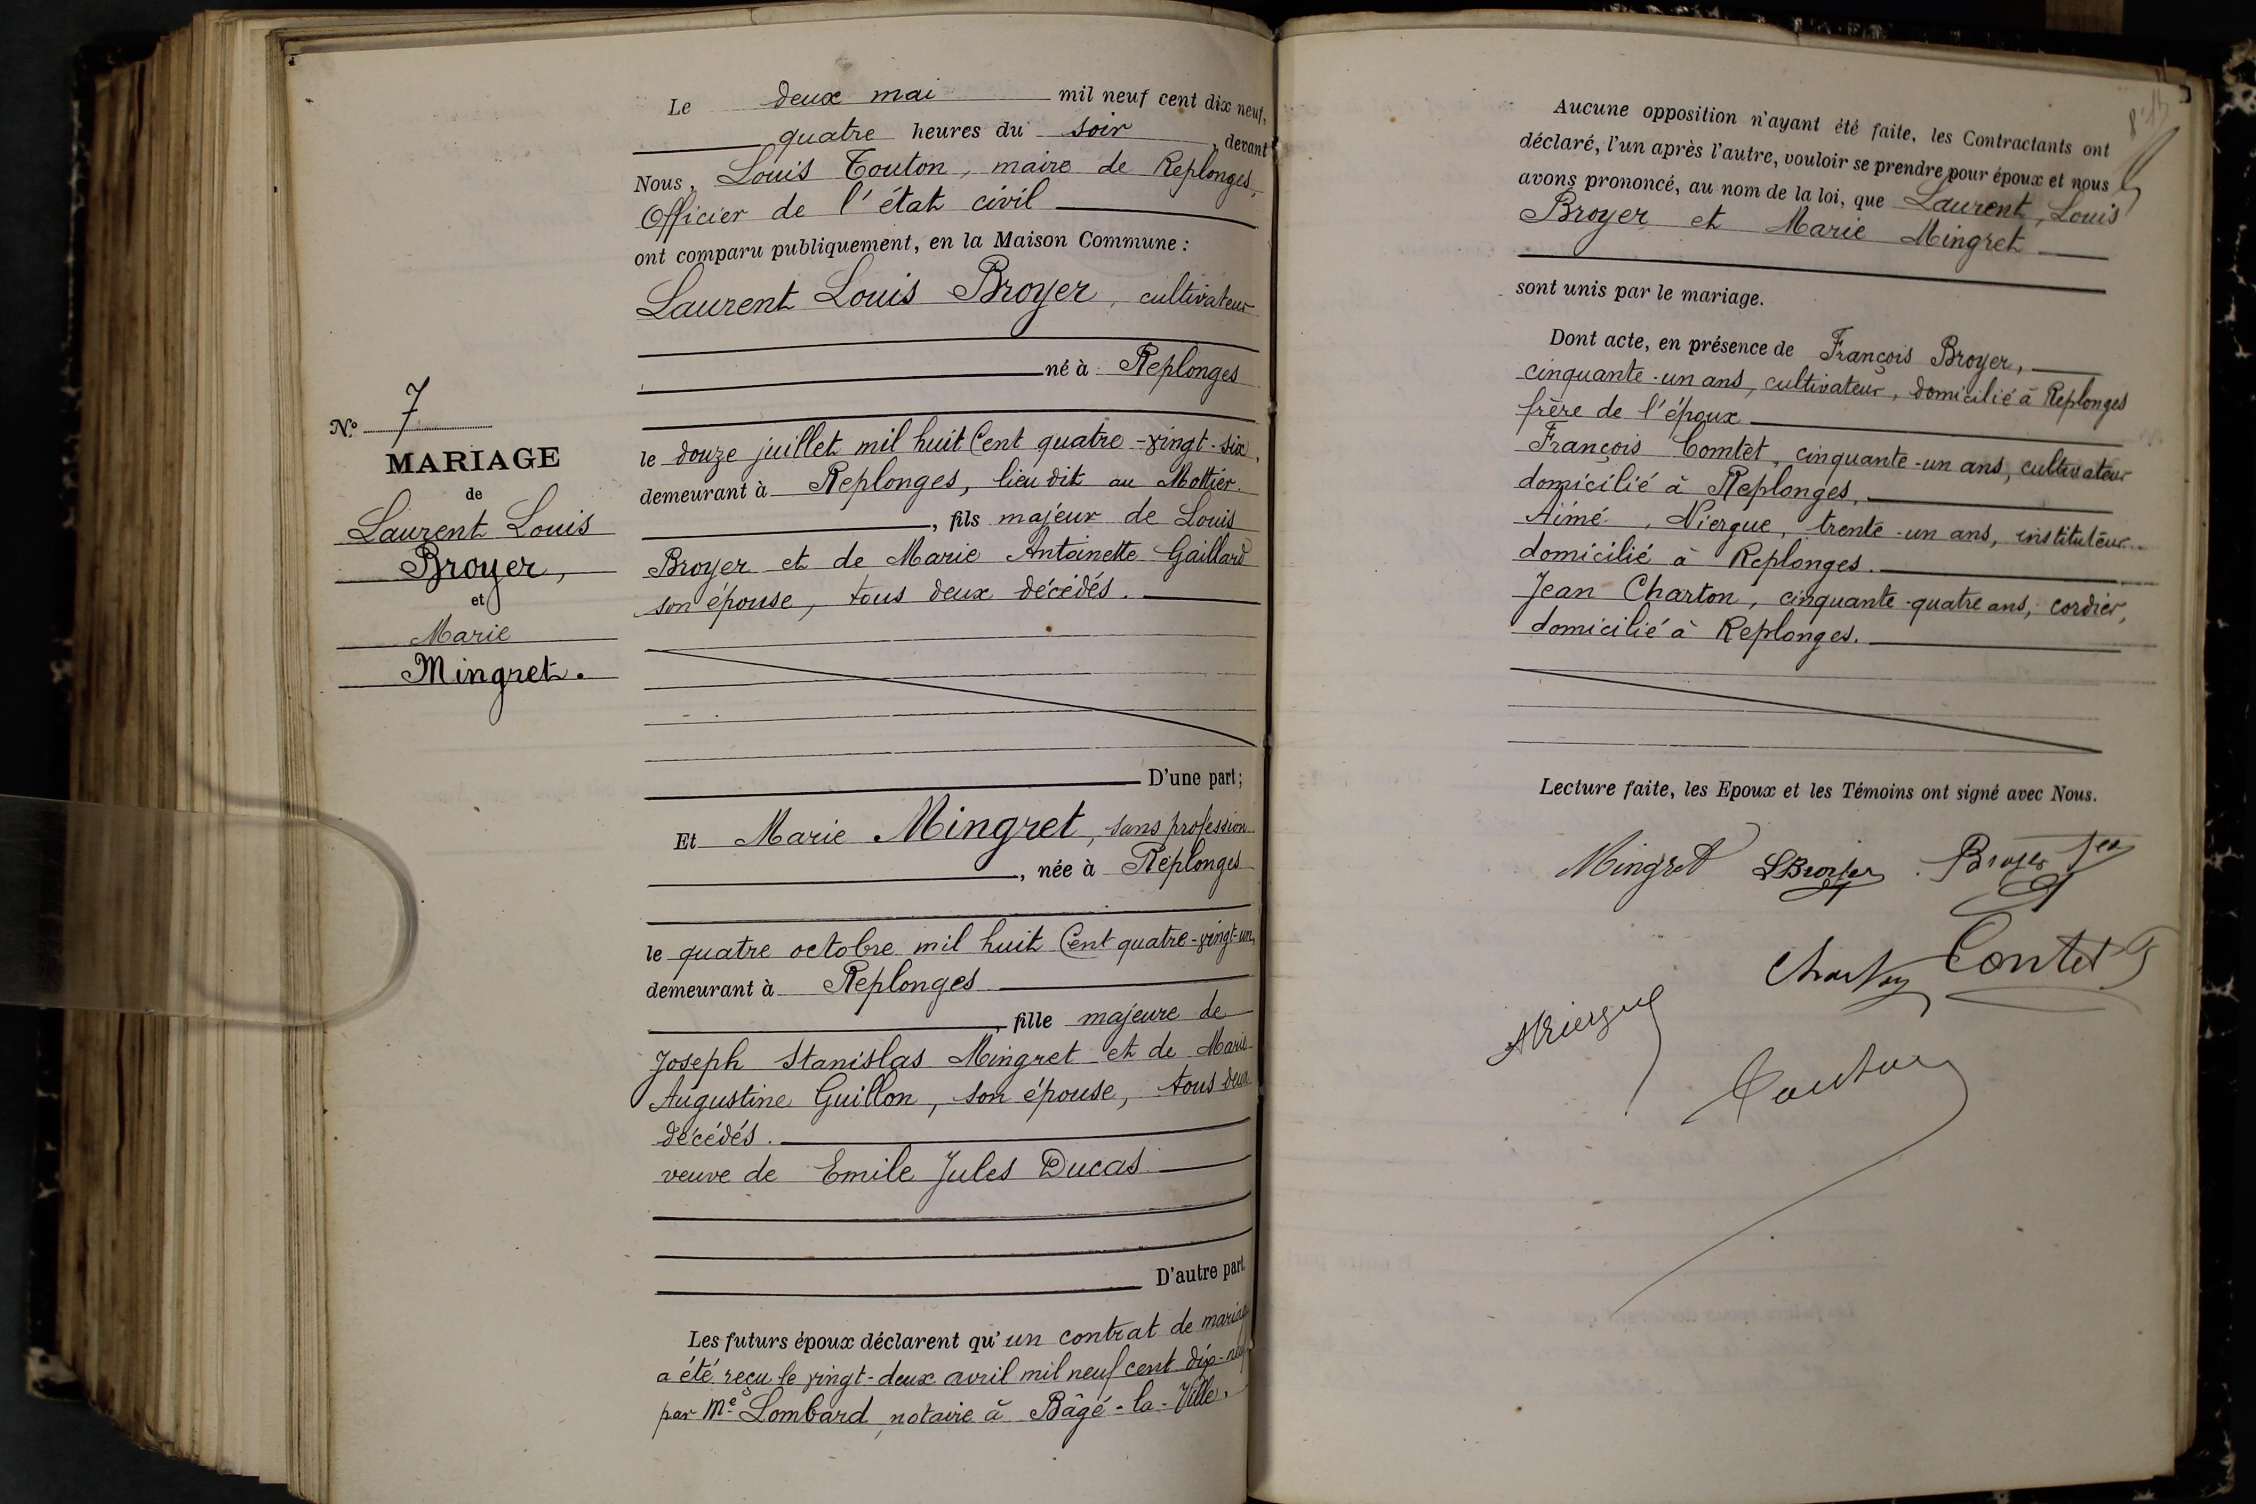 Nº 7
MARIAGE
de
Laurent Louis
Broyer,
et
Marie
Mingret.
Le deux mai mil neuf cent dix neuf,
quatre heures du soir, devant
Nous, Louis Touton, maire de Replonges,
Officier de l'état civil
ont comparu publiquement, en la Maison Commune :
Laurent Louis Broyer, cultivateur
né à Replonges
le douze juillet mil huit Cent quatre-vingt-six,
demeurant à Replonges, lieu dit au Mottier
, fils majeur de Louis
Broyer et de Marie Antoinette Gaillard
son épouse, tous deux décédés.
D'une part;
Et Marie Mingret, sans profession
, née à Replonges
le quatre octobre mil huit Cent quatre-vingt-un,
demeurant à Replonges
, fille majeure de
Joseph Stanislas Mingret et de Marie
Augustine Guillon, son épouse, tous deux
décédés.
veuve de Emile Jules Ducas
D'autre part
Les futurs époux déclarent qu'un contrat de mariage
a été reçu le vingt-deux avril mil neuf cent dix-neuf
par Me Lombard, notaire à Bâgé-la-Ville.
Aucune opposition n'ayant été faite, les Contractants ont
déclaré, l'un après l'autre, vouloir se prendre pour époux et nous
avons prononcé, au nom de la loi, que Laurent, Louis
Broyer et Marie Mingret
sont unis par le mariage.
Dont acte, en présence de François Broyer,
cinquante-un ans, cultivateur, domicilié à Replonges
frère de l'époux
François Comtet, cinquante-un ans, cultivateur
domicilié à Replonges,
Aimé, Niergue, trente-un ans, instituteur
domicilié à Replonges.
Jean Charton, cinquante-quatre ans, cordier,
domicilié à Replonges.
Lecture faite, les Epoux et les Témoins ont signé avec Nous.
Mingret LBroyer Broyer
Charton Contet
ANiergue
Touton